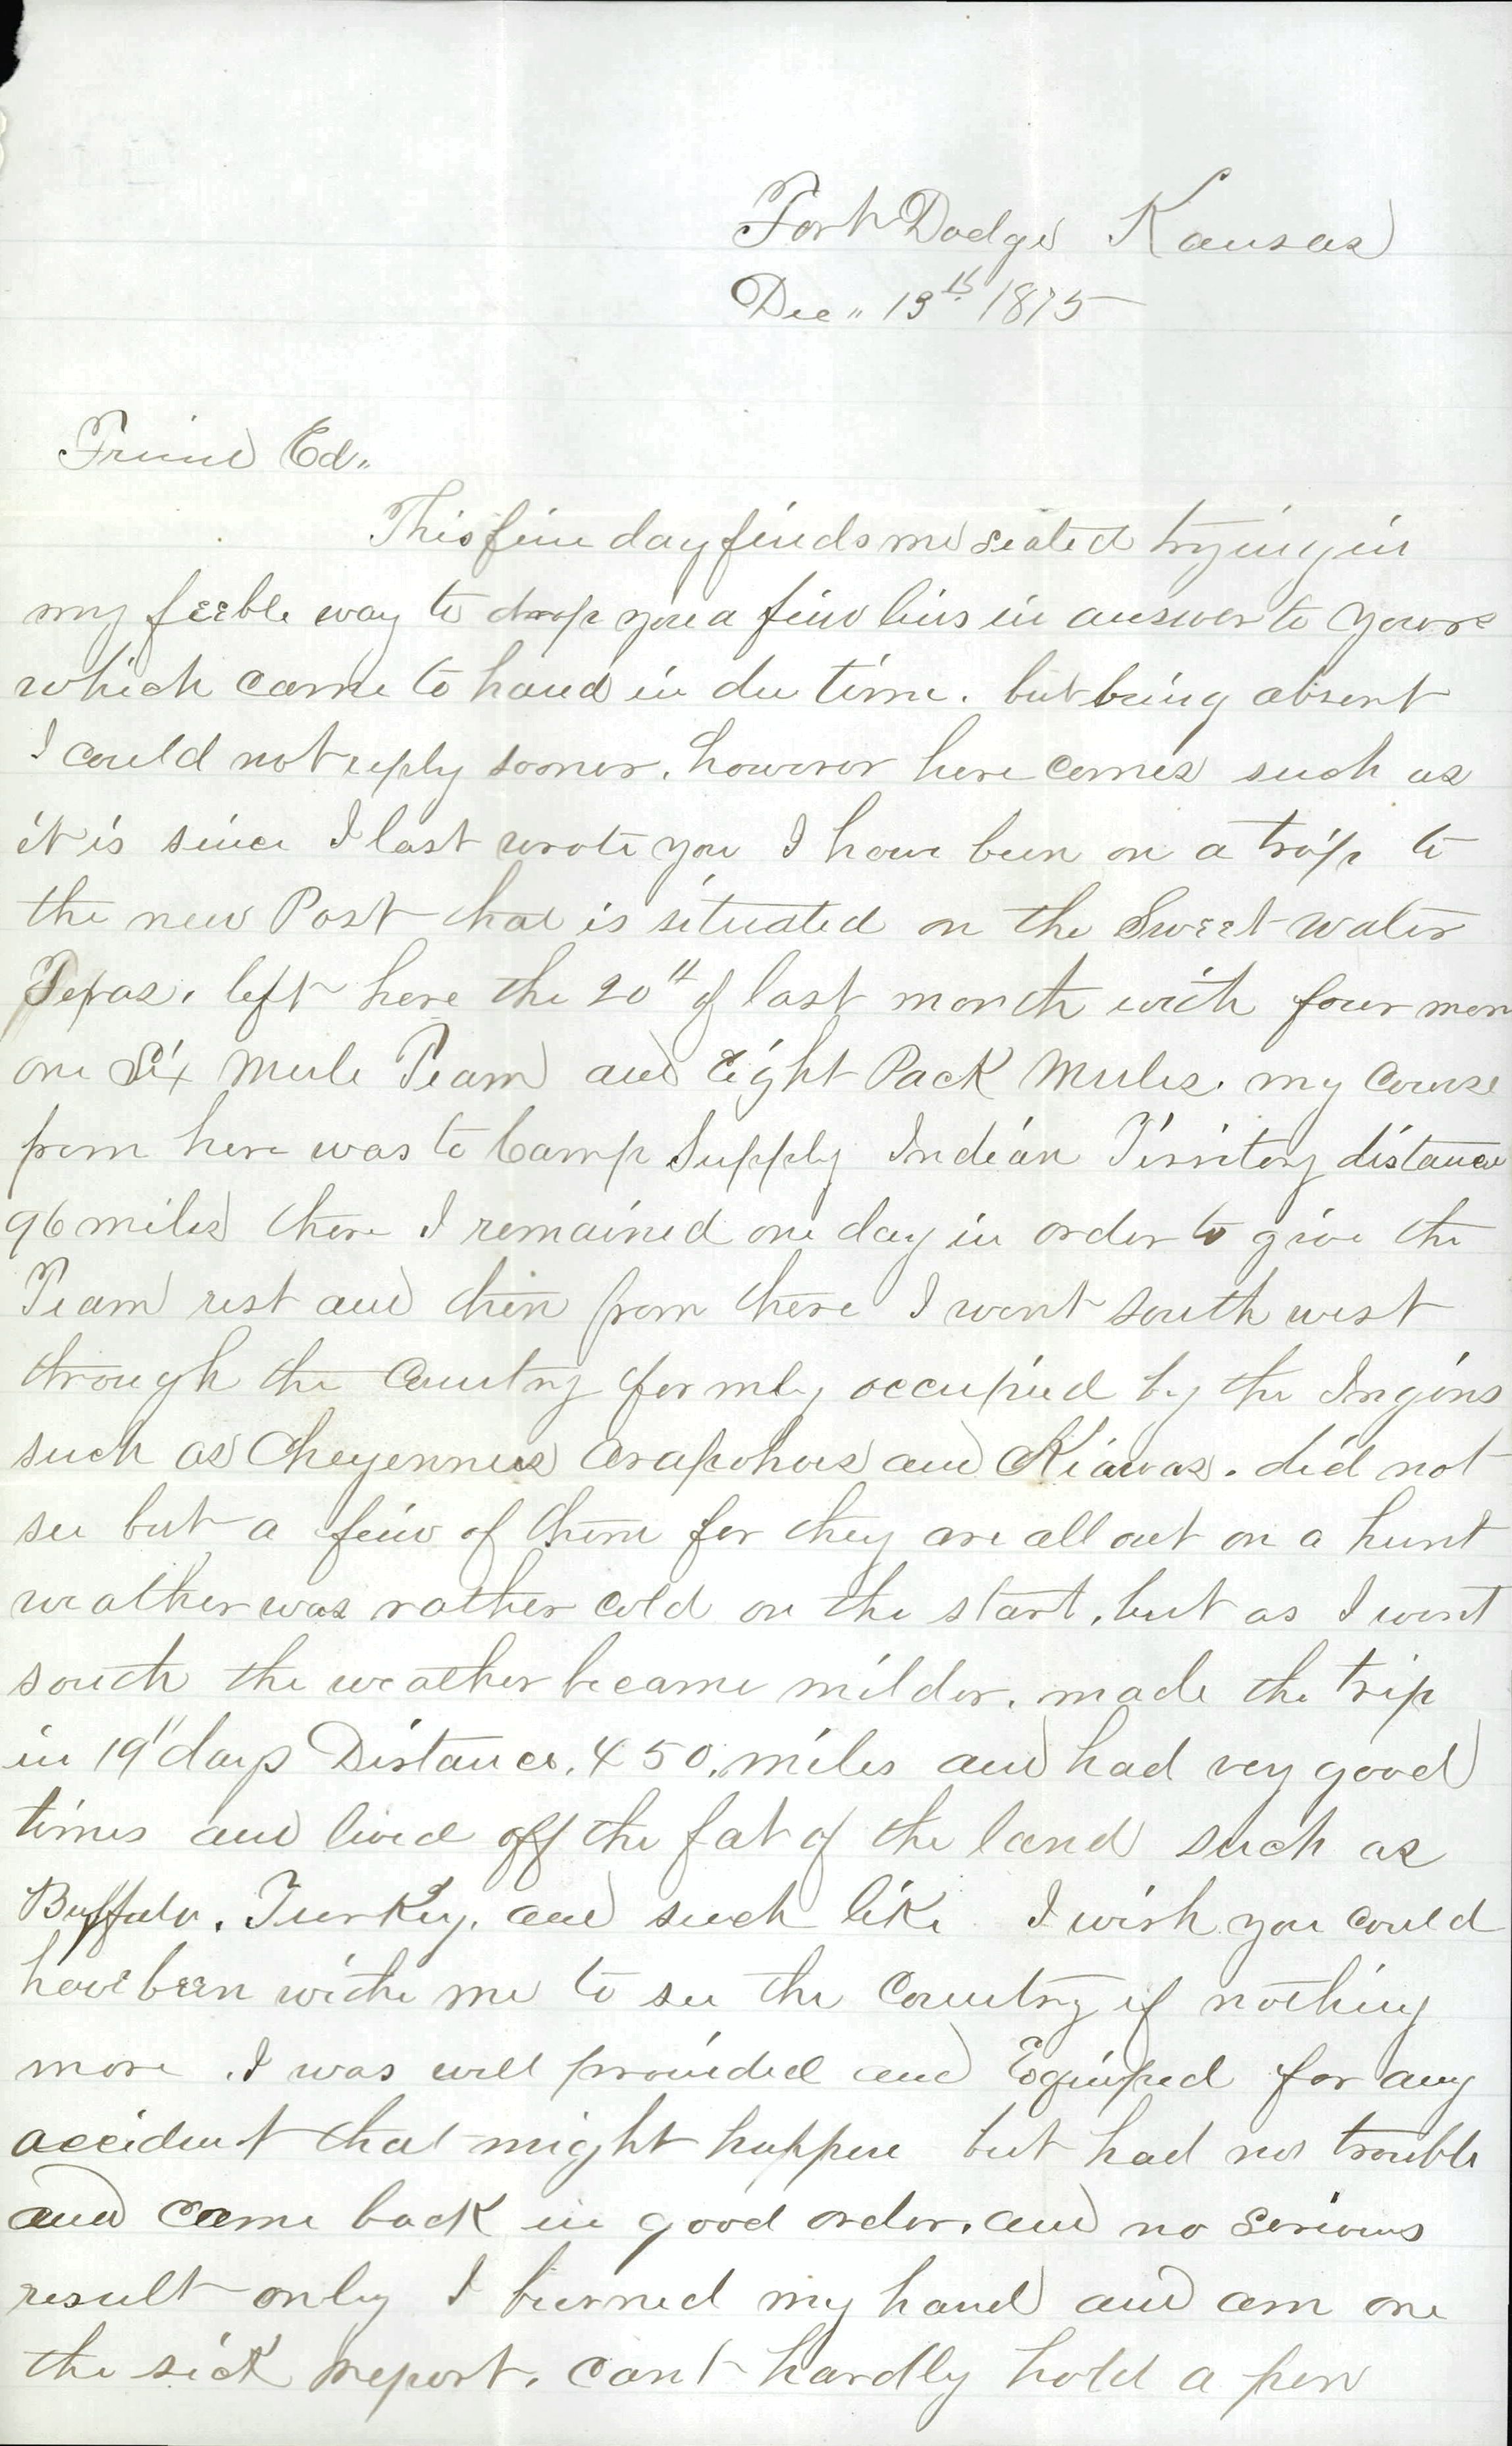 Fort Dodge Kansas
Dec" 13th 1875
Friend Ed"
This fine day finds me seated trying in
my feeble way to drop you a few lines in answer to yours
which came to hand in due time. but being absent
I could not reply sooner. however here comes such as
it is since I last wrote you I have been on a trip to
the new Post that is situated on the Sweet water
Texas. left here the 20th of last month with four men
one Six Mule Team and Eight Pack Mules. my course
from here was to Camp Supply Indian Territory distance
96 miles there I remained one day in order to give the
Team rest and then from there I went south west
through the Country formly occupied by the Ingins
such as Cheyennes Arapohoes and Kiawas. did not
see but a few of them for they are all out on a hunt
weather was rather cold on the start. but as I went
south the weather became milder. made the trip
in 19" days Distance. 450. miles and had very good
times and lived off the fat of the land such as
Buffalo. Turkey. and such like I wish you could
have been withe me to see the Country if nothing
more. I was well provided and Equiped for any
accident that might happen but had no trouble
and came back in good order. and no serious
result only I burned my hand and am one
the sick report. cant hardly hold a pen